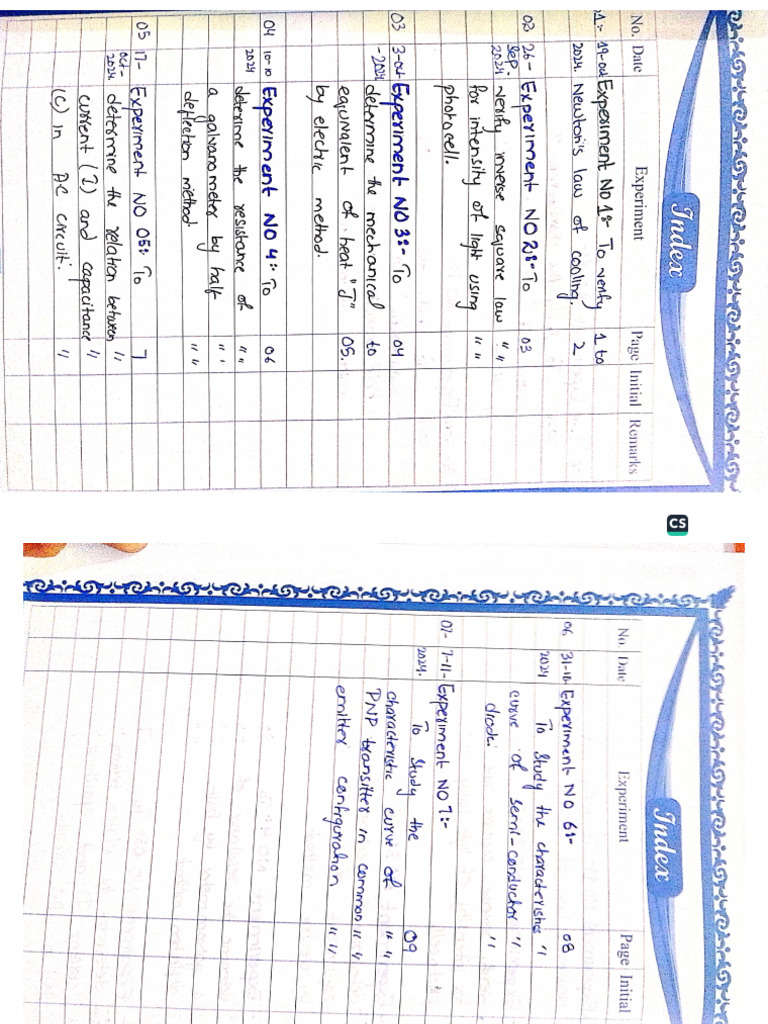 Index
No. Date Experiment Page Initial Remarks
01:- 19-oct Experiment No 1:- To verify 1 to
2024. Newton's law of cooling. 2
02 26- Experiment NO 2:- To 03
Sep. verify inverse square law " "
2024 for intensity of light using " "
photocell.
03 3-out Experiment NO 3:- To 04
-2024 determine the mechanical to
equivalent of heat "J" 05.
by electric method.
04 10-10 Experiment NO 4:- To 06
2024 deterime the resistance of " "
a galvanometer by half " "
deflection method " "
05 17- Experiment NO 05:- To 7
oct- determine the relation between "
2024 current (I) and capacitance "
(C) in AC circuit. "
CS
Index
No. Date Experiment Page Initial
06. 31-10- Experiment NO 6:- 08
2024 To study the characteristics "
curve of semi-conductor "
diode. "
07- 7-11- Experiment NO 7:-
2024. To study the 09
characteristic curve of " "
PNP transitter in common " "
emitter configuration " "